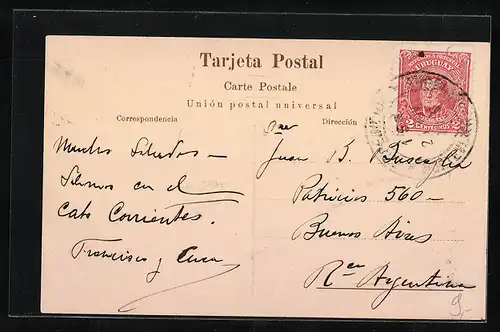 Tarjeta Postal
Carte Postale
Unión postal universal
Correspondencia
Dirección
URUGUAY
2 CENTESIMOS 2
Muchos Saludos –
Salimos en el
Cabo Corrientes.
Francisco y Cuca
Juan B. Buscaglia
Patricios 560 –
Buenos Aires
Rca Argentina
9,-